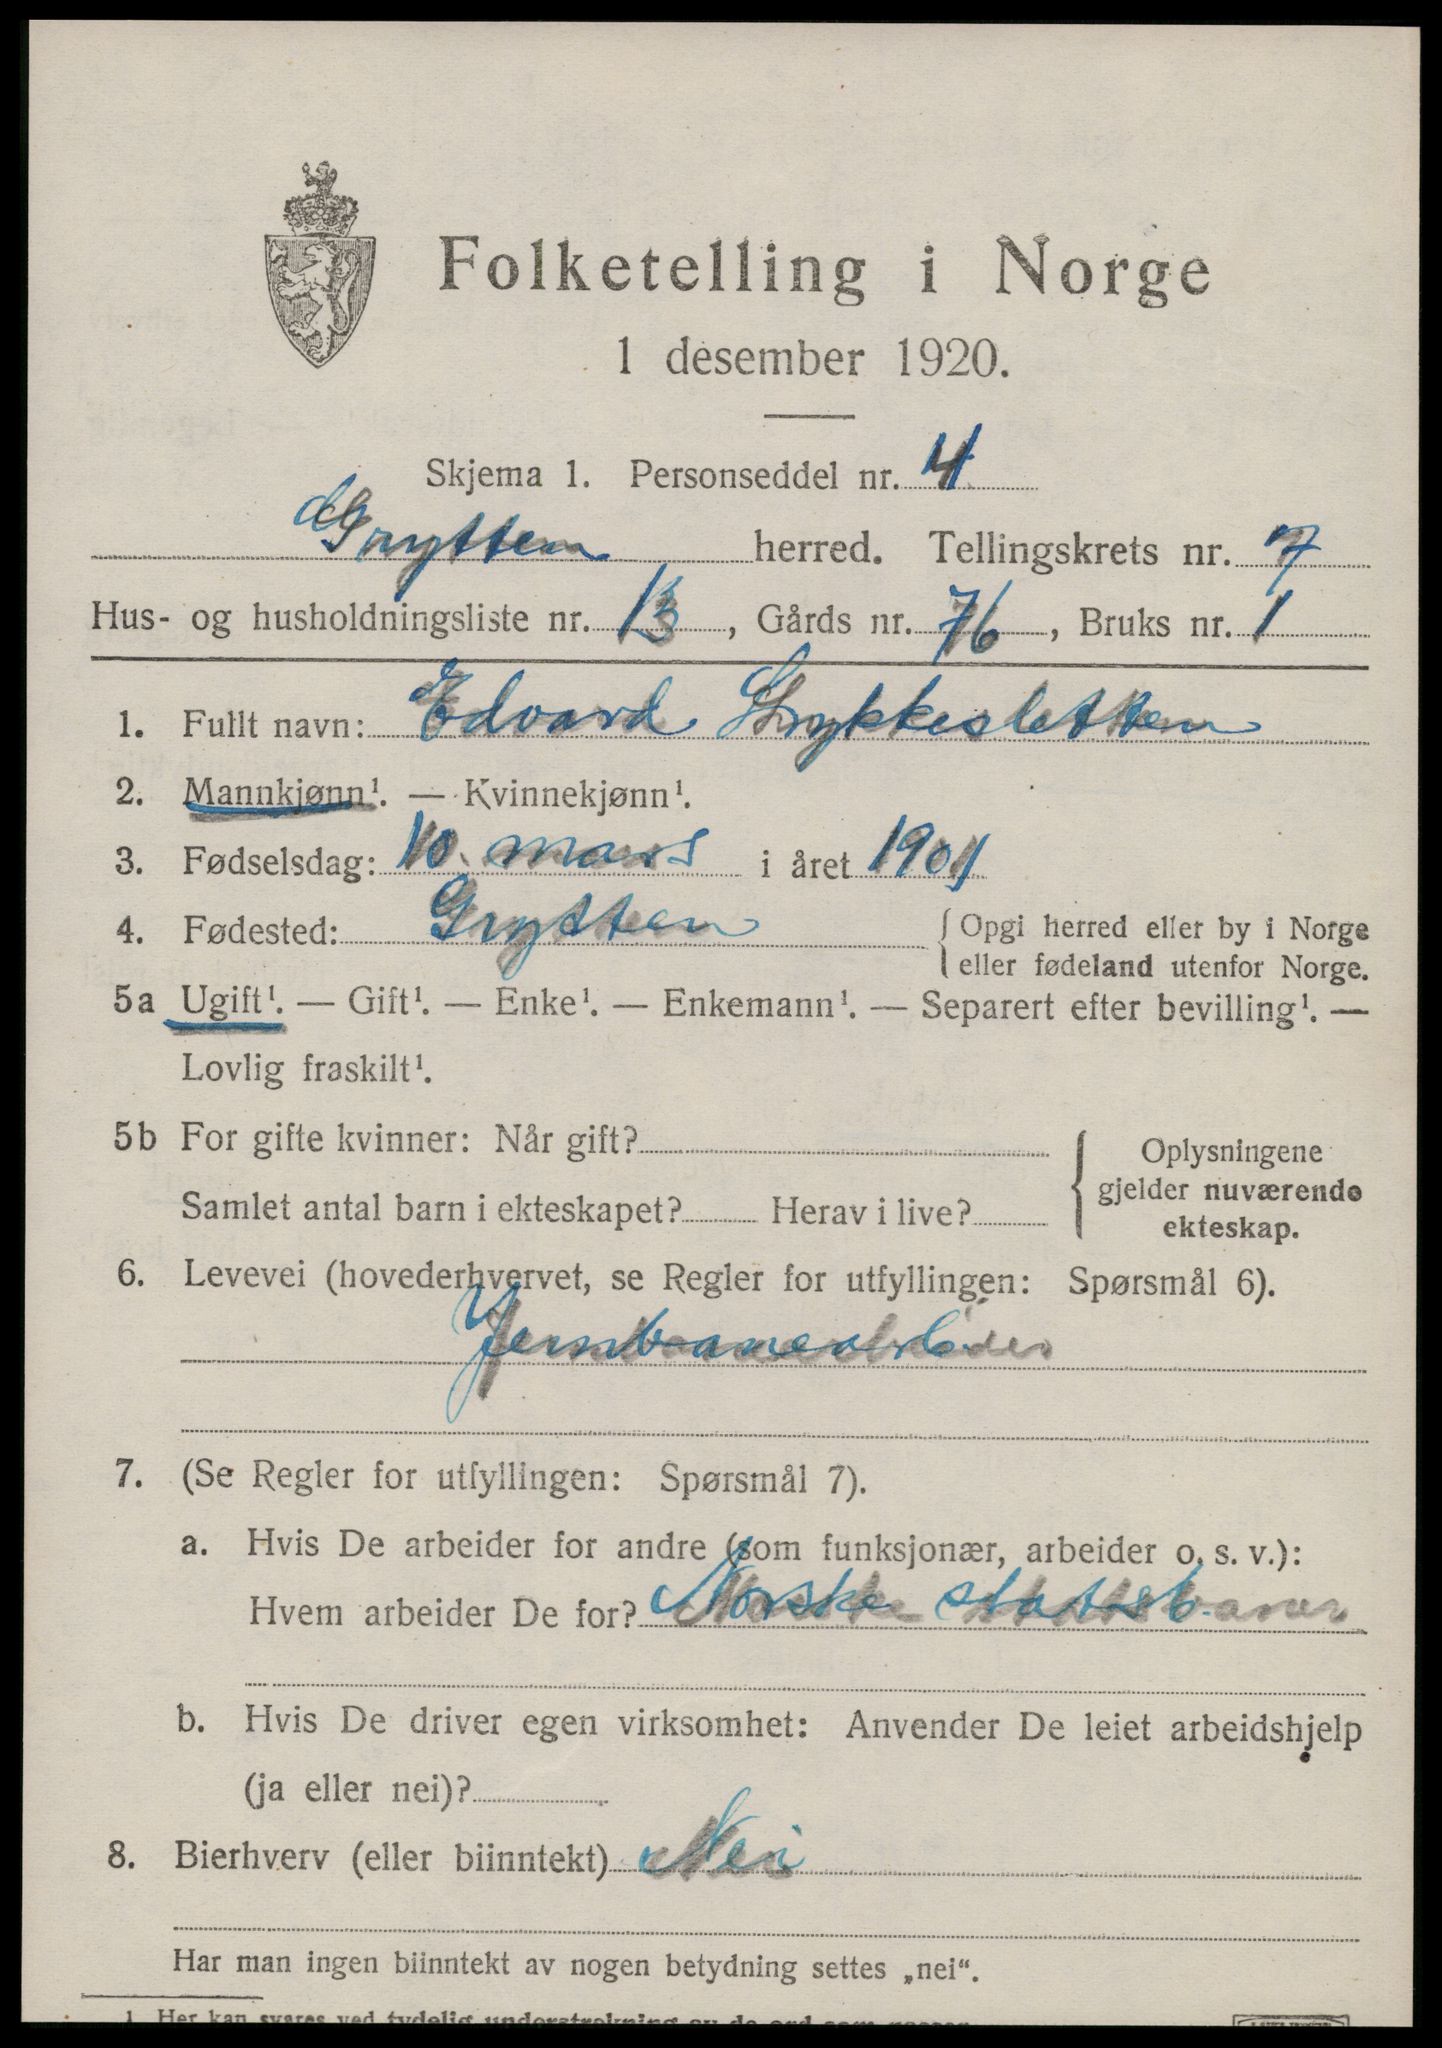 Folketelling i Norge
1 desember 1920.
Skjema 1. Personseddel nr. 4
Grytten herred. Tellingskrets nr. 7
Hus- og husholdningsliste nr. 13, Gårds nr. 76, Bruks nr. 1
1. Fullt navn: Edvard Strykkesletten
2. Mannkjønn¹. — Kvinnekjønn¹.
3. Fødselsdag: 10. mars i året 1901
4. Fødested: Grytten {Opgi herred eller by i Norge
eller fødeland utenfor Norge.
5a Ugift¹. — Gift¹. — Enke¹. — Enkemann¹. — Separert efter bevilling¹. —
Lovlig fraskilt¹.
5b For gifte kvinner: Når gift?
Samlet antal barn i ekteskapet? Herav i live?
{Oplysningene
gjelder nuværende
ekteskap.
6. Levevei (hovederhvervet, se Regler for utfyllingen: Spørsmål 6).
Jernbanearbeider
7. (Se Regler for utfyllingen: Spørsmål 7).
a. Hvis De arbeider for andre (som funksjonær, arbeider o. s. v.):
Hvem arbeider De for? Norske statsbaner
b. Hvis De driver egen virksomhet: Anvender De leiet arbeidshjelp
(ja eller nei)?
8. Bierhverv (eller biinntekt) Nei
Har man ingen biinntekt av nogen betydning settes „nei“.
1 Her kan svares ved tydelig understrekning av de ord som passer.